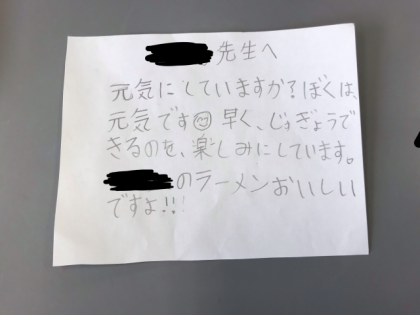 先生へ
元気にしていますか?ぼくは、
元気です 早く、じゅぎょうで
きるのを、楽しみにしています。
のラーメンおいしい
ですよ!!!